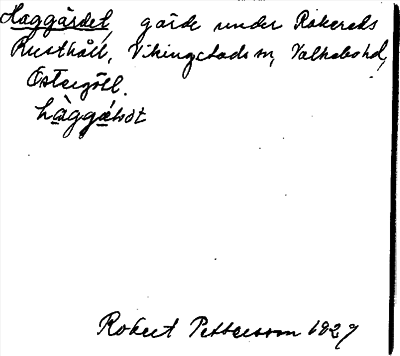 Haggärdet, gärde under Rakereds
Rusthåll, Vikingstads sn, Valkebo hd,
Östergötl.
Robert Pettersson 1927